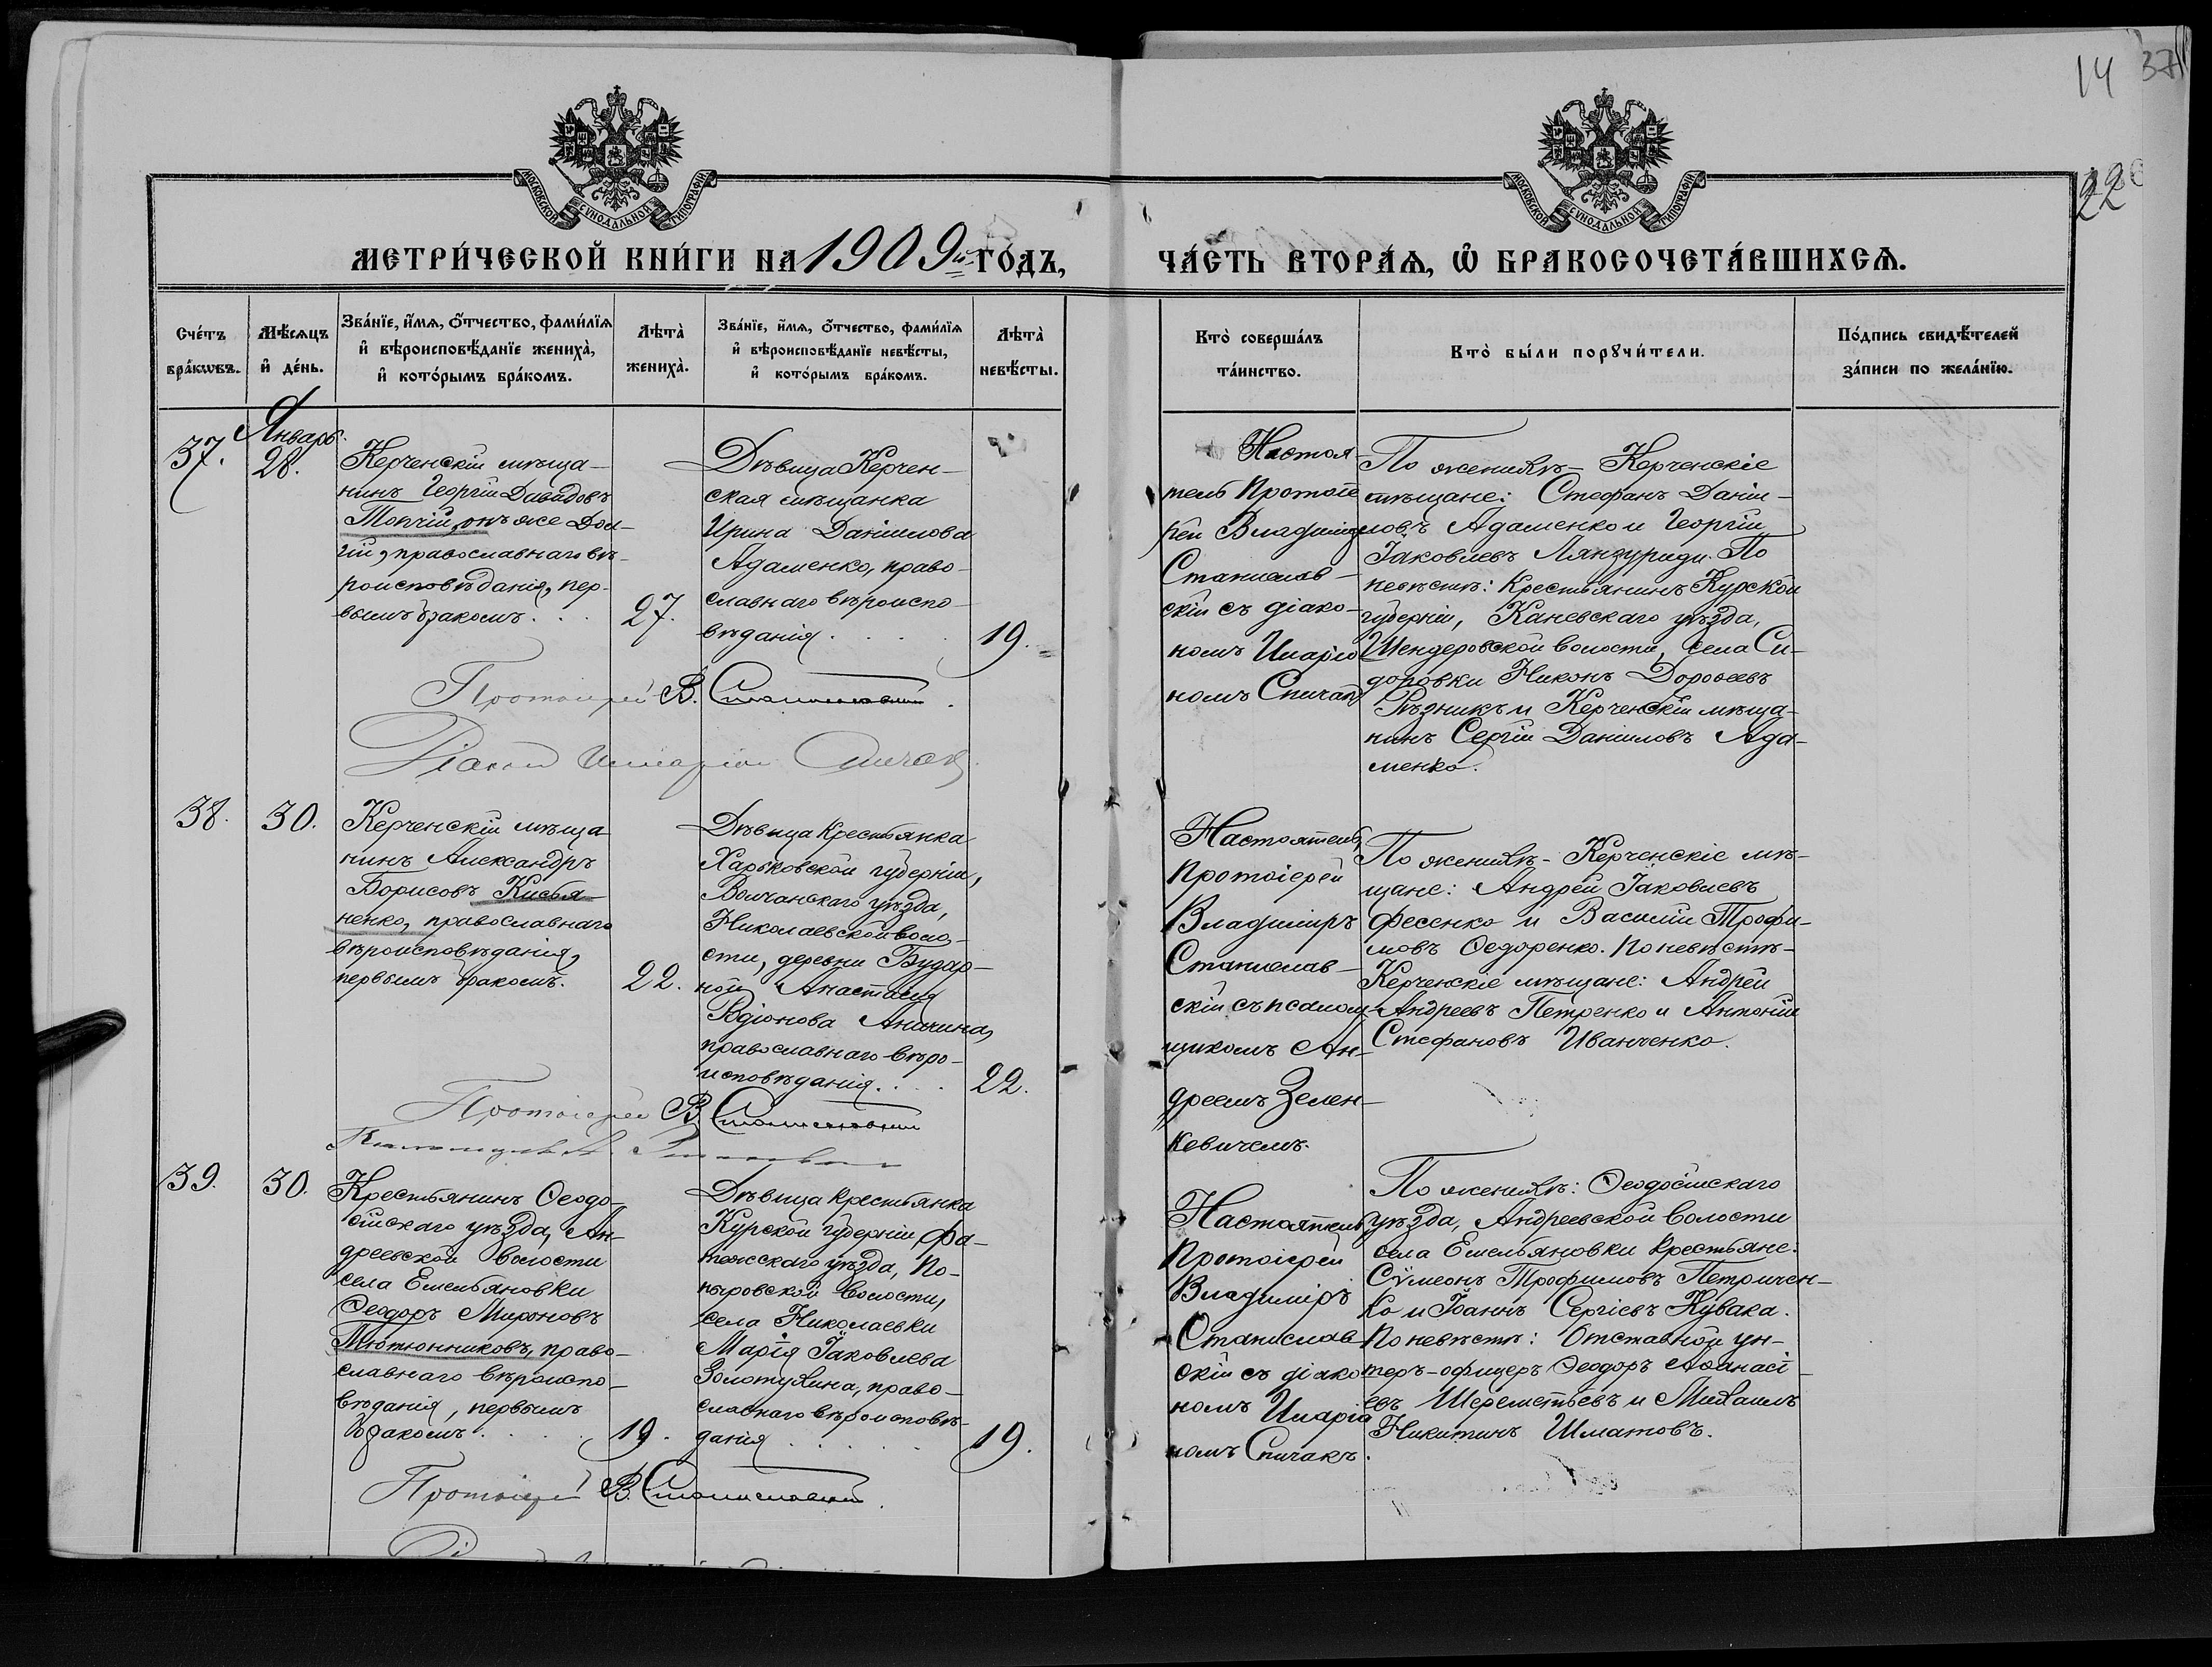 14 37
22
МОСКОВСКОЙ СУНОДАЛЬНОЙ ТИПОГРАФІИ
МОСКОВСКОЙ СУНОДАЛЬНОЙ ТИПОГРАФІИ
МЕТРИ́ЧЕСКОЙ КНИ́ГИ НА 1909й ГО́ДЪ,
ЧА́СТЬ ВТОРА́Ѧ, Ѽ БРАКОСОЧЕТА́ВШИХСѦ.
Сче́тъ
бра́кѡвъ.
Мѣ́сѧцъ
и҆ де́нь.
Зва́нїе, и҆́мѧ, ѻ҆́тчество, фами́лїѧ
и҆ вѣроисповѣ́данїе жениха̀,
и҆ кото́рымъ бра́комъ.
Лѣта̀
жениха̀.
Зва́нїе, и҆́мѧ, ѻ҆́тчество, фами́лїѧ
и҆ вѣроисповѣ́данїе невѣ́сты,
и҆ кото́рымъ бра́комъ.
Лѣта̀
невѣ́сты.
Кто̀ соверша́лъ
та́инство.
Кто̀ бы́ли порꙋчи́тели.
По́дпись свидѣ́телей
за́писи по жела́нїю.
37.
Январь.
28.
Керченскій мѣща-
нинъ Георгій Давидовъ
Топчій, онъ же Дол-
гій, православнаго вѣ-
роисповѣданія, пер-
вымъ бракомъ . . .
27.
Дѣвица Керчен-
ская мѣщанка
Ирина Даніилова
Адаменко, право-
славнаго вѣроиспо-
вѣданія . . . .
19.
Настоя-
тель Протоіе
рей Владиміръ
Станислав-
скій съ діако-
номъ Иларіо
номъ Спичакъ
По женихѣ - Керченскіе
мѣщане: Стефанъ Даніи-
ловъ Адаменко и Георгій
Іаковлевъ Лянзуриди. По
невѣстѣ: Крестьянинъ Курской
губерніи, Каневскаго уѣзда,
Шендеровской волости, села Си-
доровки Никонъ Дороѳеевъ
Рѣзникъ и Керченскій мѣща-
нинъ Сергій Даніиловъ Ада-
менко.
Протоіерей В. Станиславскій.
Діаконъ Иларіонъ Спичакъ
38.
30.
Керченскій мѣща
нинъ Александръ
Борисовъ Кисья-
ненко, православнаго
вѣроисповѣданія,
первымъ бракомъ.
22.
Дѣвица крестьянка
Харьковской губерніи,
Волчанскаго уѣзда,
Николаевской воло-
сти, деревни Будар-
ной Анастасія
Родіонова Аничина,
православнаго вѣро-
исповѣданія. . . .
22.
Настоятель,
Протоіерей
Владиміръ
Станислав-
скій съ псалом-
щикомъ Ан-
дреемъ Зелен-
кевичемъ.
По женихѣ - Керченскіе мѣ-
щане: Андрей Іаковлевъ
Фесенко и Василій Трофи-
мовъ Ѳедоренко. По невѣстѣ-
Керченскіе мѣщане: Андрей
Андреевъ Петренко и Антоній
Стефановъ Иванченко.
Протоіерей В. Станиславскій
39.
30.
Крестьянинъ Ѳеодо-
сійскаго уѣзда, Ан-
дреевской волости
села Емельяновки
Ѳеодоръ Мироновъ
Тютюнниковъ, право-
славнаго вѣроиспо-
вѣданія, первымъ
бракомъ . . . .
19.
Дѣвица крестьянка
Курской губерніи, Фа-
тежскаго уѣзда, По-
ныровской волости,
села Николаевки
Марія Іаковлева
Золотухина, право-
славнаго вѣроисповѣ-
данія . . . . .
19.
Настоятель
Протоіерей
Владиміръ
Станислав
скій съ діако
номъ Иларіо
номъ Спичакъ.
По женихѣ: Ѳеодосійскаго
уѣзда, Андреевской волости
села Емельяновки крестьяне:
Сѵмеонъ Трофимовъ Петричен-
ко и Іоаннъ Сергіевъ Кувака.
По невѣстѣ: Отставной ун-
теръ-офицеръ Ѳеодоръ Аѳанасі-
евъ Шереметьевъ и Михаилъ
Никитинъ Шматовъ.
Протоіерей В. Станиславскій.